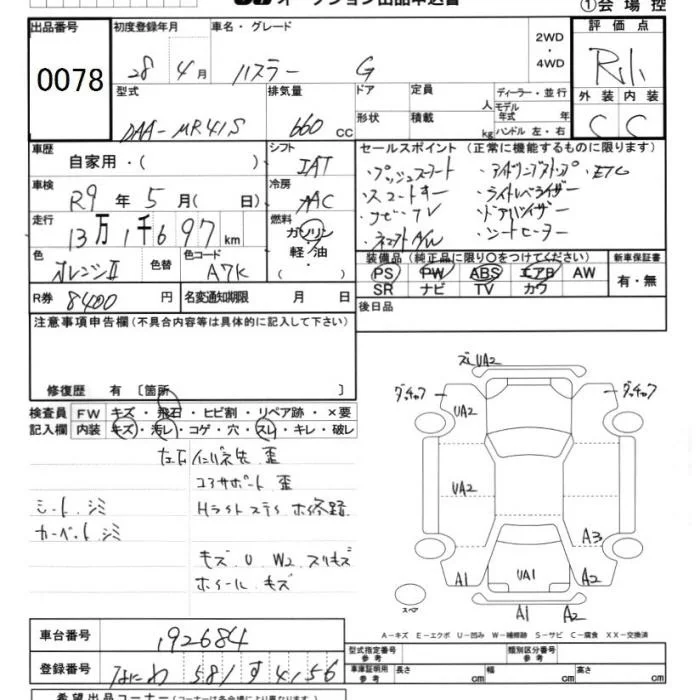 ①会場控
出品番号
0078
初度登録年月
28年4月
車名・グレード
ハスラー G
2WD
・
4WD
評価点
R小
外装 内装
C C
型式
DAA-MR41S
排気量
660 CC
ドア
形状
定員
人
積載
kg
ディーラー・並行
モデル年式 年
ハンドル 左・右
車歴
自家用・( )
シフト
IAT
セールスポイント (正常に機能するものに限ります)
・プッシュスタート ・アイドリングストップ ・ETC
・スマートキー ・ライトレベライザー
・ナビ・TV ・ドアバイザー
・シートヒーター
車検
R9年5月( 日)
冷房
AAC
走行
13万1千697km
燃料
ガソリン
軽・油
( )
色
オレンジII
色替
色コード
A7K
装備品 (純正品に限り○をつけてください)
PS PW ABS エアB AW
SR ナビ TV カワ
新車保証書
有・無
R券
8400円
名変通知期限 月 日
後日品
注意事項申告欄(不具合内容等は具体的に記入して下さい)
修復歴 有 〔箇所 〕
検査員記入欄
FW キズ・飛石・ヒビ割・リペア跡・×要
内装 キズ・汚レ・コゲ・穴・スレ・キレ・破レ
左右インパネ先 歪
コアサポート 歪
シート シミ
カーペット シミ
キズ U W2 スリキズ
ホイール キズ
ズレUA2
UA2
UA2
A3
A1 UA1 A2
A1 A2
スペア
A-キズ E-エクボ U-凹み W-補修跡 S-サビ C-腐食 XX-交換済
車台番号
192684
登録番号
なにわ 581 す 4156
型式指定番号
参考
類別区分番号
参考
車庫証明用
参考
長さ cm
幅 cm
高さ cm
希望出品コーナー